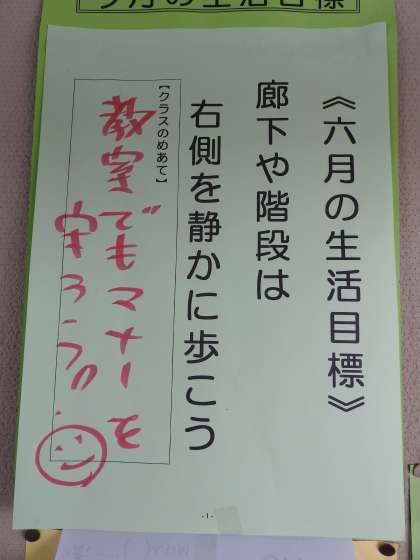 月の生活目標
《六月の生活目標》
廊下や階段は
右側を静かに歩こう
【クラスのめあて】
教室でもマナーを
守ろう。
- 1 -